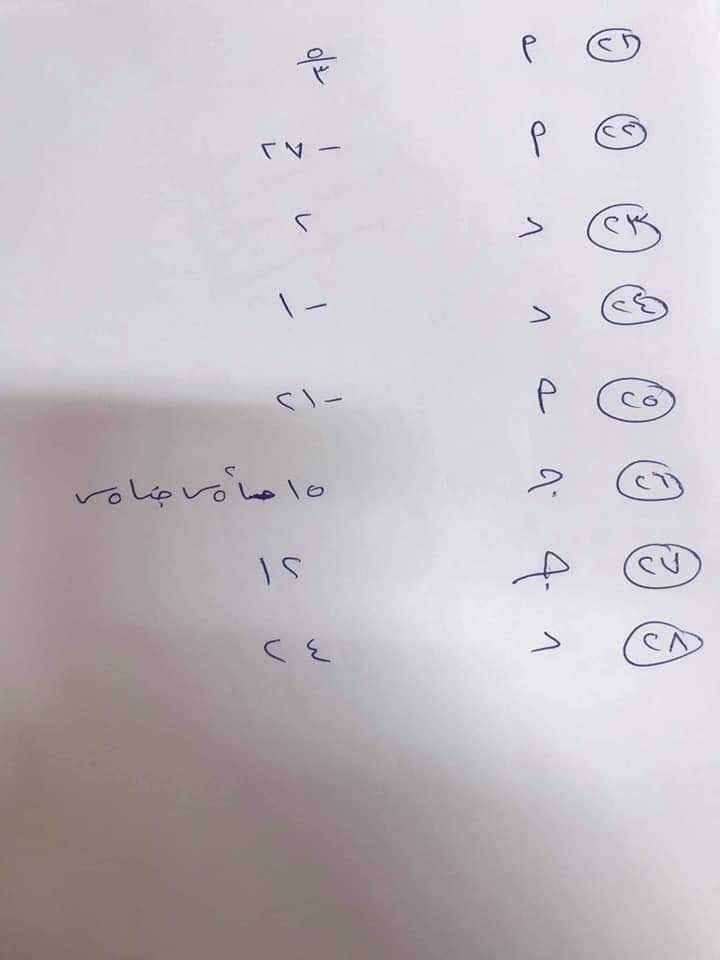 ٢١ أ ٥/٣
٢٢ أ -٢٧
٢٣ د ٢
٢٤ د -١
٢٥ أ -٢١
٢٦ جـ ١٥ جا²٥س جتا٥س
٢٧ جـ ١٢
٢٨ د ٢٤